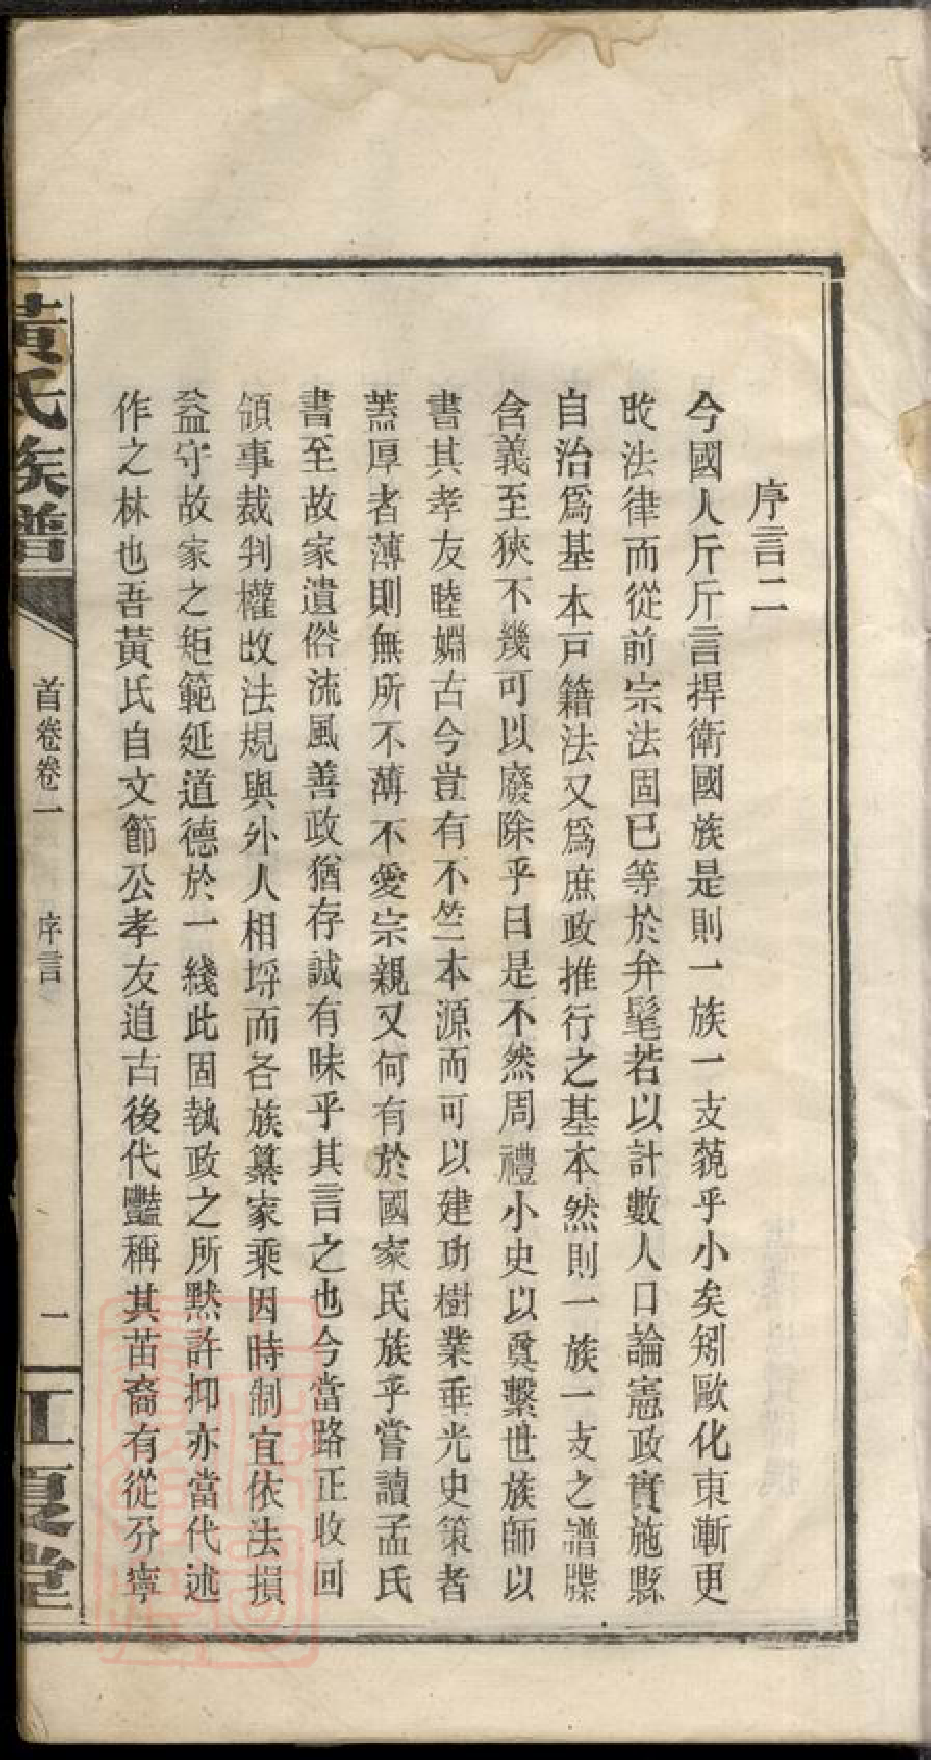 序言二
今國人斤斤言捍衛國族是則一族一支藐乎小矣矧歐化東漸更
改法律而從前宗法固已等於弁髦若以計數人口論憲政實施縣
自治爲基本戸籍法又爲庶政推行之基本然則一族一支之譜牒
含義至狹不幾可以廢除乎曰是不然周禮小史以奠繫世族師以
書其孝友睦婣古今豈有不竺本源而可以建功樹業垂光史策者
蓋厚者薄則無所不薄不愛宗親又何有於國家民族乎嘗讀孟氏
書至故家遺俗流風善政猶存誠有味乎其言之也今當路正收回
領事裁判權改法規與外人相埒而各族纂家乘因時制宜依法損
益守故家之矩範延道德於一綫此固執政之所默許抑亦當代述
作之林也吾黃氏自文節公孝友追古後代豔稱其苗裔有從分寧
黃氏族譜
首卷卷一
序言
一
江夏堂